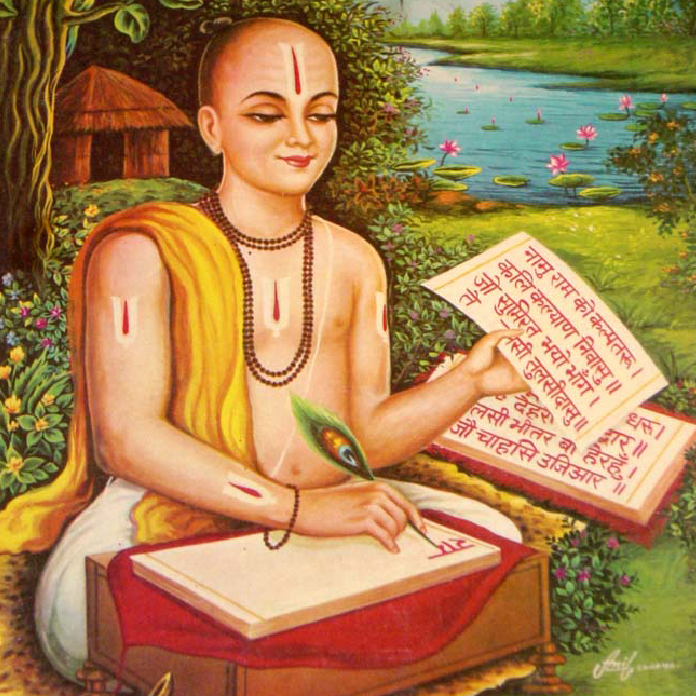 नामु राम को कल्पतरु ।
कलि कल्याण निवासु ॥
जो सुमिरत भयो भाँग ।
ते लसी तुलसीदासु ॥
देहर
लसी भीतर बा हेरहुँ ।
जौ चाहसि उजिआर ॥